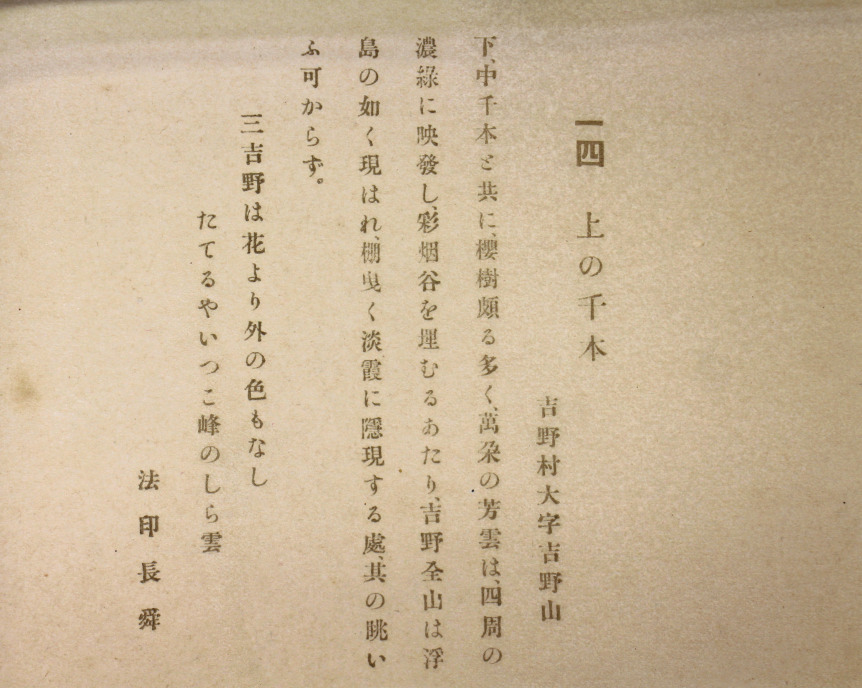 一四 上の千本
吉野村大字吉野山
下、中千本と共に、櫻樹頗る多く、萬朶の芳雲は、四周の
濃綠に映發し、彩烟谷を埋むるあたり、吉野全山は浮
島の如く現はれ、棚曳く淡霞に隱現する處、其の眺い
ふ可からず。
三吉野は花より外の色もなし
たてるやいつこ峰のしら雲
法印長舜